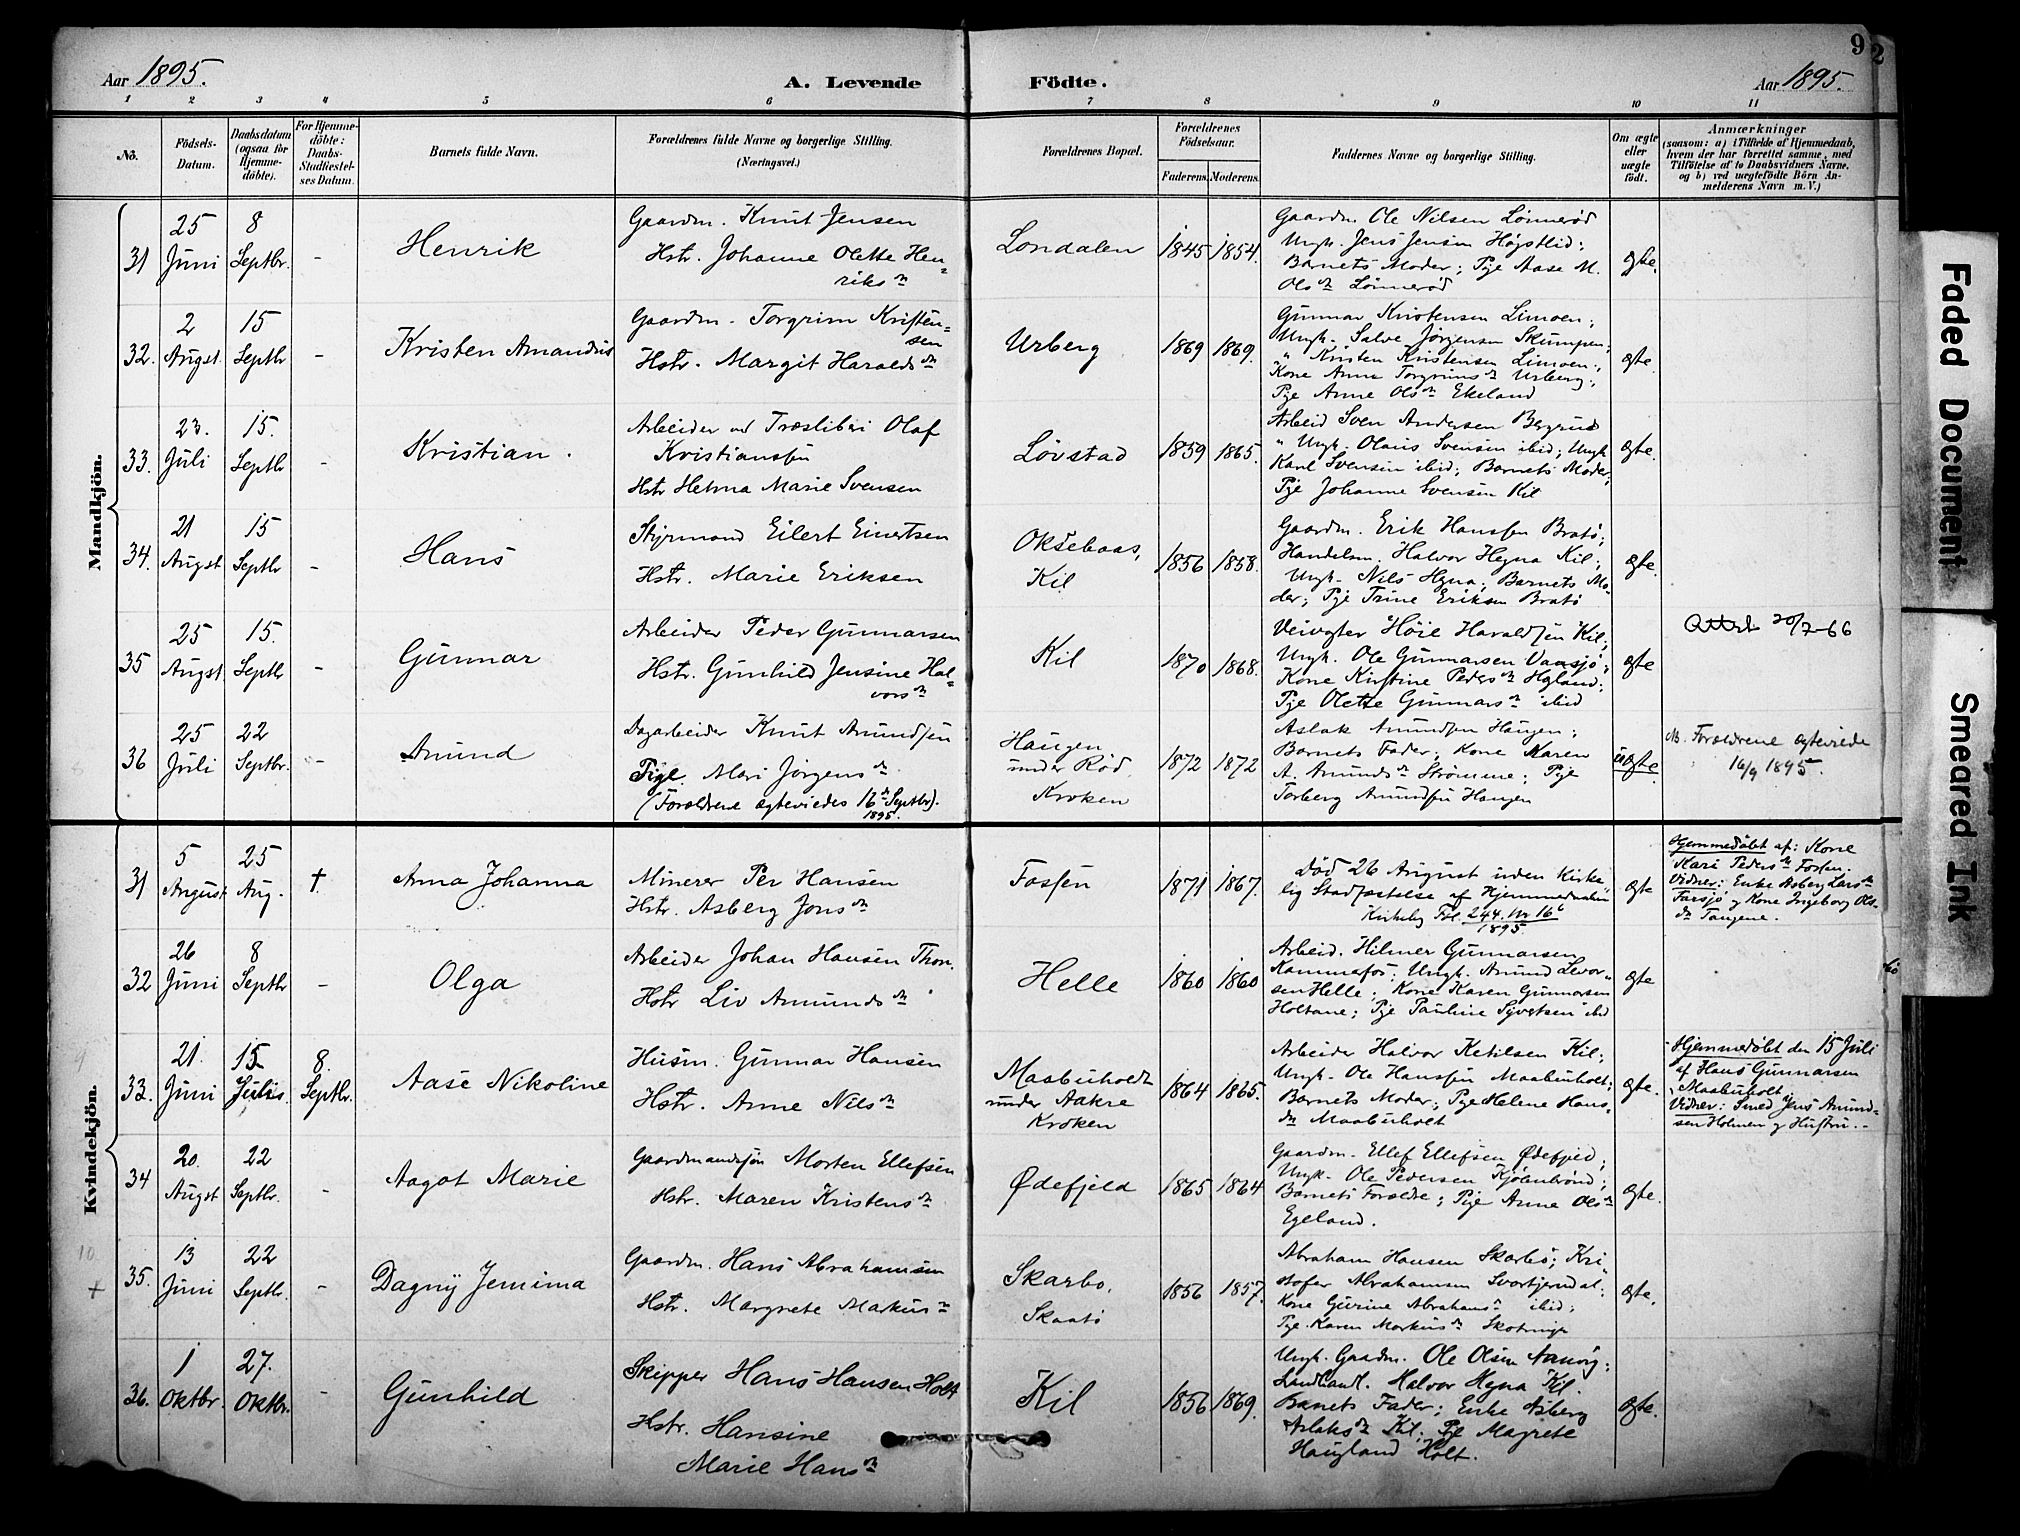 Aar 1895.
A. Levende
Födte.
Aar 1895.
9
2
1 2 3 4 5 6 7 8 9 10 11
No.
Födsels-Datum.
Daabsdatum (ogsaa for Hjemmedöbte).
For Hjemmedöbte: Daabs-Stadfæstelses Datum.
Barnets fulde Navn.
Forældrenes fulde Navne og borgerlige Stilling.
(Næringsvei.)
Forældrenes Bopæl.
Forældrenes Födselsaar.
Faderens. Moderens.
Faddernes Navne og borgerlige Stilling.
Om ægte eller uægte födt.
Anmærkninger
(saasom: a) i Tilfælde af Hjemmedaab, hvem der har forrettet samme, med Tilföielse af to Daabsvidners Navne. og b) ved uægtefödte Börn Anmelderens Navn m. V.)
Mandkjön.
31 25 Juni 8 Septbr. - Henrik
Gaardm. Knut Jensen
Hstr. Johanne Olette Hen-
riksdn
Londalen 1845 1854.
Gaardm. Ole Nilsen Lönnerød
Ungk. Jens Jensen Högstlid;
Barnets Moder; Pige Aase M.
Olsdn Lönnerød
ægte.
32. 2 Augst 15 Septbr - Kristen Amandus
Gaardm. Torgrim Kristen-
sen
Hstr. Margit Haraldsdn
Urberg 1869 1869.
Gunnar Kristensen Limoen;
Ungk. Salve Jørgensen Skumpen;
" Kristen Kristensen Limoen;
Kone Anne Torgrimsdn Urberg;
Pge Anne Olsdn Ekeland
ægte.
33. 23. Juli 15. Septbr - Kristian.
Arbeider ved Træsliberi Olaf
Kristianssen
Hstr Helma Marie Svensen
Lövstad 1859 1865.
Arbeid Sven Andersen
" Ungk. Olaus Svensen ibid; Ungk
Karl Svensen ibid; Barnets Moder;
Pge Johanne Svensen Kil
ægte.
34. 21 Augst 15 Septbr - Hans
Styrmand Eilert Einertsen
Hstr. Marie Eriksen
Oksebaas,
Kil
1856 1858.
Gaardm. Erik Hanssen Bratö;
Handelsm. Halvor Hegna Kil;
Ungk. Nils Hegna; Barnets Mo-
der; Pge Trine Eriksen Bratö
ægte.
35 25 Augst. 15. Septbr - Gunnar
Arbeider Peder Gunnarsen
Hstr. Gunhild Jensine Hal-
vorsdn
Kil 1870 1868.
Veivogter Höie Haraldsen Kil;
Ungk. Ole Gunnarsen Vaasjö;
Kone Kirstine Pedersdn Hegland;
Pge Olette Gunnarsdn ibid
ægte
Attest 20/7-66
36 25 Juli 22 Septbr. - Anund
Dagarbeider Knut Anundsen
Pige Mari Jörgensdn
(Forældrene ægteviedes 16de Septbr).
1895.
Haugen
under Rød.
Kroken
1872 1872
Aslak Anundsen Haugen;
Barnets Fader; Kone Karen
A. Anundsdn Strömme; Pge
Torberg Anundsen Haugen
uægte.
NB. Forældrene ægteviede
16/9 1895.
Kvindekjön.
31 5 August 25 Aug. † Anna Johanna
Minerer Per Hansen
Hstr. Asberg Jonsdn
Fossen 1871 1867.
Død 26 August uden Kirke-
lig Stadfæstelse af Hjemmedaaben
Kirkebg Fol. 244. Nr 16b
1895.
ægte
Hjemmedøbt af: Kone
Kari Pedersdn Fossen.
Vidner: Enke Asberg Larsdn
Farsjö og Kone Ingeborg Ols-
dn Tangene.
32 26 Juni 8 Septbr Olga
Arbeider Johan Hansen Thon.
Hstr Liv Anundsdn
Helle 1860 1860
Arbeid. Hilmer Gunnarsen
Kammafos; Ungk. Anund Levor-
sen Helle; Kone Karen Gunnarsen
Holtane; Pge Pauline Syvetsen ibid
ægte
33. 21. Juni 15. Julis. 8. Septbr. Aase Nikoline
Husm. Gunnar Hansen
Hstr. Anne Nilsdn
Maabuholdt
under Aakre
Kroken
1864 1865.
Arbeider Halvor Ketilsen Kil;
Ungk. Ole Hanssen Maabuholt;
Barnets Moder; Pge Helene Hans-
dn Maabuholt
ægte.
Hjemmedøbt den 15 Juli
af Hans Gunnarsen
Maabuholt.
Vidner: Smed Jens Anund-
sen Holmen og Hustru.
34 20. Augst 22 Septbr. - Aagot Marie
Gaardmandssøn Morten Ellefsen
Hstr. Maren Kristensdn
Ødefjeld 1865 1864
Gaardm. Ellef Ellefsen Ødefjeld;
Ungk. Ole Pedersen Kjölebrønd;
Barnets Forældre; Pige Anne Olsdn
Egeland.
ægte.
35. 13 Juni 22 Septbr. - Dagny Jemima
Gaardm. Hans Abrahamsen
Hstr. Margrete Markusdn
Skarbo,
Skaatö
1856 1857.
Abraham Hansen Skarbo; Kri-
stofer Abrahamsen Svartjerndal;
Kone Gurine Abrahamsdn ibid;
Pge Karen Markusdn
ægte.
36. 1 Oktbr. 27. Oktbr. - Gunhild
Skipper Hans Hansen Holt
Hstr. Hansine
Marie Hansdn
Kil 1856 1869.
Ungk. Gaardm. Ole Olsen
Landhandl. Halvor Hegna Kil.
Barnets Fader; Enke Asberg
Aslaksdn Kil; Pge Magrete
Haugland Holt.
ægte.
Faded Document
Smeared Ink